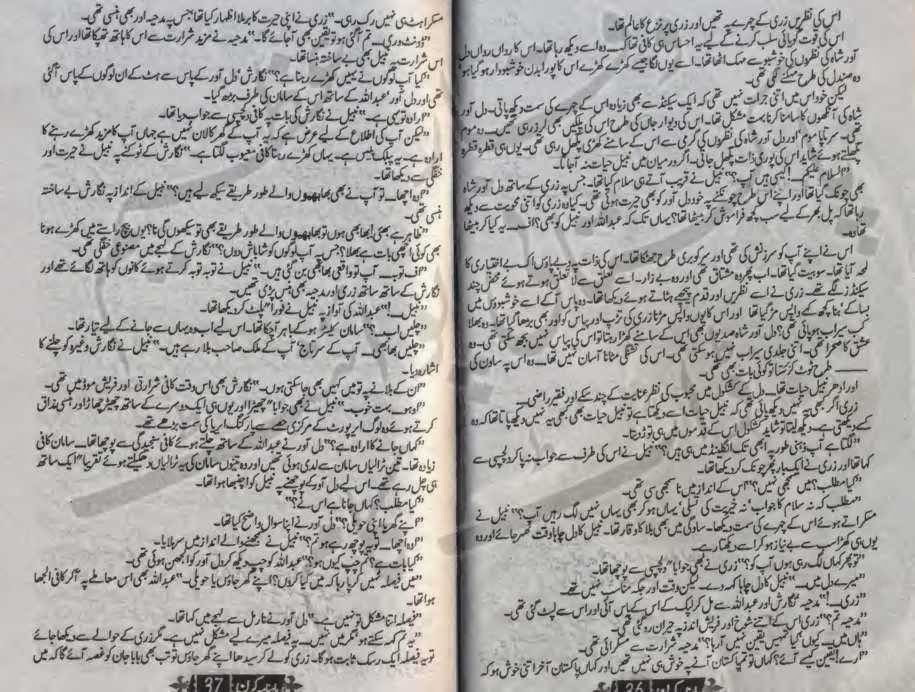 اس کی نظریں زری کے چہرے پہ تھیں اور زری پر نزع کا عالم تھا۔
اس کی قوت گویائی سلب کرنے کے لیے یہ احساس ہی کافی تھا کہ وہ اسے دیکھ رہا تھا۔ اس کا رواں رواں دل
آور شاہ کی نظروں کی خوشبو سے مہک اٹھا تھا۔ اسے یوں لگا جیسے کھڑے کھڑے اس کا پورا بدن خوشبودار ہو گیا ہو
وہ صندل کی طرح مہکنے لگی تھی۔
لیکن خود اس میں اتنی جرات نہیں تھی کہ ایک سیکنڈ سے بھی زیادہ اس کے چہرے کی سمت دیکھ پاتی۔ دل آور
شاہ کی آنکھوں کا سامنا کرنا بہت مشکل تھا۔ اس کی
تھی۔ سرتاپا موم اور دل آور شاہ کی نظروں کی گرمی سے اس کے سامنے کھڑی پگھل رہی تھی۔ یوں ہی قطرہ قطرہ
پگھلتے ہوئے شاید اس کی پوری ذات پگھل جاتی۔ اگر درمیان میں نبیل حیات نہ آجاتا۔
"السلام علیکم! کیسی ہیں آپ؟" نبیل نے قریب آتے ہی سلام کیا تھا۔ جس پہ زری کے ساتھ دل آور شاہ
بھی چونک گیا تھا اور اپنے اس طرح چونکنے پہ خود دل آور کو بھی حیرت ہوئی تھی۔ کیا وہ زری کو اتنی محویت سے دیکھ
رہا تھا کہ پل بھر کے لیے سب کچھ فراموش کر بیٹھا تھا؟ یہاں تک کہ عبداللہ اور نبیل کو بھی؟ اف۔۔۔ یہ کیا کر بیٹھا
تھا وہ۔
اس نے اپنے آپ کو سرزنش کی تھی اور سر کو بری طرح جھٹکا تھا۔ اس کی ذات پہ دبے پاؤں اک بے اختیاری کا
لمحہ آیا تھا۔ سو بیت گیا تھا۔ اب پھر وہ مشتاق تھی اور وہ بے زار۔ اسے تعلق سے لا تعلق ہوتے ہوئے محض چند
سیکنڈز لگے تھے۔ زری نے اسے نظریں اور قدم پیچھے ہٹاتے ہوئے دیکھا تھا۔ وہ پاس آکے اسے خوشبوؤں میں
بسا کے بنا کچھ کہے واپس مڑ گیا تھا اور اس کا یوں واپس مڑنا زری کی تڑپ اور پیاس کو اور بھی بڑھا گیا تھا۔ وہ بھلا
کب سیراب ہو پائی تھی؟ دل آور شاہ صدیوں بھی اس کے سامنے کھڑا رہتا تو اس کی پیاس نہیں بجھ سکتی تھی۔ وہ
عشق کا صحرا تھی۔ اتنی جلدی سیراب نہیں ہو سکتی تھی۔ اس کی تشنگی مٹانا آسان نہیں تھا۔ وہ اس پہ ساون کی
طرح ٹوٹ کر برستا تو کوئی بات بھی تھی۔
اور ادھر نبیل حیات تھا۔ دل کے کشکول میں محبوب کی نظر عنایت کے چند سکے اور فقیر راضی۔۔۔
زری اگر بھی یہ نہیں دیکھ پائی تھی کہ نبیل حیات اسے دیکھتا ہے تو نبیل حیات بھی کبھی یہ نہیں دیکھ پایا تھا کہ وہ
کسے دیکھتی ہے۔ دیکھ لیتا تو شاید کشکول اس کے قدموں میں ہی توڑ دیتا۔
"لگتا ہے آپ ذہنی طور پہ ابھی تک انگلینڈ میں ہی ہیں؟" نبیل نے اس کی طرف سے جواب نہ پا کر دلچسپی سے
کہا تھا اور زری نے ایک بار پھر چونک کر دیکھا تھا۔
"کیا مطلب؟ میں سمجھی نہیں؟" اس کے انداز میں ناسمجھی سی تھی۔
"مطلب کہ نہ سلام کا جواب، نہ خیریت کی تسلی، یہاں ہو کر بھی یہاں نہیں لگ رہیں آپ؟" نبیل نے
مسکراتے ہوئے اس کے چہرے کی سمت دیکھا۔ سادگی میں بھی بلا کا وقار تھا۔ نبیل کا دل چاہا وقت ٹھہر جائے اور وہ
یوں ہی کھڑا سب سے بے نیاز ہو کر اسے دیکھتا رہے۔
"تو پھر کہاں لگ رہی ہوں آپ کو؟" زری نے بھی جوابا" دلچسپی سے پوچھا تھا۔
"میرے دل میں۔۔۔" نبیل کا دل چاہا کہہ دے۔ لیکن وقت اور جگہ مناسب نہیں تھے۔
"زری۔۔۔!" مدحیہ، نگارش اور عبداللہ سے مل کر لپک کے اس کے پاس آئی اور اس سے لپٹ گئی تھی۔
"مدحیہ تم؟" زری اس کے اتنے شوخ اور فریش انداز پہ حیران رہ گئی تھی۔
"ہاں میں۔۔۔ کیوں کیا تمہیں یقین نہیں آ رہا؟" مدحیہ شرارت سے مسکرائی تھی۔
"ارے! یقین کیسے آئے؟ کہاں تو تم پاکستان آنے پہ خوش ہی نہیں تھیں اور کہاں پاکستان آ کر اتنی خوش ہو کہ
36
مسکراہٹ ہی نہیں رک رہی۔" زری نے اپنی حیرت کا برملا اظہار کیا تھا جس پہ مدحیہ اور بھی ہنسی تھی۔
"ڈونٹ وری۔۔۔ تم آ گئی ہو تو یقین بھی آ جائے گا۔" مدحیہ نے مزید شرارت سے اس کا ہاتھ تھپکا تھا اور اس کی
اس شرارت پہ نبیل بھی بے ساختہ ہنسا تھا۔
"کیا آپ لوگوں نے یہیں کھڑے رہنا ہے؟" نگارش، دل آور کے پاس سے ہٹ کے ان لوگوں کے پاس آ گئی
تھی اور دل آور، عبداللہ کے ساتھ اس کے سامان کی طرف بڑھ گیا۔
"ارادہ تو یہی ہے۔" نبیل نے نگارش کی بات پہ کافی دلچسپی سے جواب دیا تھا۔
"لیکن آپ کی اطلاع کے لیے عرض ہے کہ یہ آپ کے گھر کا لان نہیں ہے جہاں آپ کا مزید کھڑے رہنے کا
ارادہ ہے۔ یہ پبلک پلیس ہے۔ یہاں کھڑے رہنا کافی معیوب لگتا ہے۔" نگارش کے ٹوکنے پہ نبیل نے حیرت اور
خفگی سے دیکھا تھا۔
"اوہ اچھا۔۔۔ تو آپ نے بھی بھابھیوں والے طور طریقے سیکھ لیے ہیں؟" نبیل کے انداز پہ نگارش بے ساختہ
ہنسی تھی۔
"ظاہر ہے بھئی! بھابھی ہوں تو بھابھیوں والے طور طریقے بھی تو سیکھوں گی نا؟ یوں بیچ راستے میں کھڑے ہونا
بھی کوئی اچھی بات ہے بھلا؟ جس پہ آپ لوگوں کو شاباش دوں؟" نگارش کے لہجے میں مصنوعی خفگی تھی۔
"اف توبہ۔۔۔ آپ تو واقعی بھابھی بن گئی ہیں۔" نبیل نے توبہ توبہ کرتے ہوئے کانوں کو ہاتھ لگائے تھے اور
نگارش کے ساتھ ساتھ زری اور مدحیہ بھی ہنس پڑی تھیں۔
"نبیل۔۔۔!" عبداللہ کی آواز پہ نبیل نے فورا" پلٹ کر دیکھا تھا۔
"چلیں اب؟" سامان کلیئر ہو کے باہر آ چکا تھا۔ اس لیے اب وہ یہاں سے جانے کے لیے تیار تھا۔
"چلیں بھابھی۔۔۔ آپ کے سرتاج، آپ کے ملک صاحب بلا رہے ہیں۔" نبیل نے نگارش وغیرہ کو چلنے کا
اشارہ دیا۔
"ان کے بلانے پہ تو میں کہیں بھی جا سکتی ہوں۔" نگارش بھی اس وقت کافی شرارتی اور فریش موڈ میں تھی۔
"اوہو۔ بہت خوب۔" نبیل نے بھی جوابا" چھیڑا اور یوں ہی ایک دوسرے کے ساتھ چھیڑ چھاڑ اور ہنسی مذاق
کرتے ہوئے وہ لوگ ایئرپورٹ کے مرکزی حصے سے پارکنگ ایریا کی سمت بڑھے تھے۔
"کہاں جانے کا ارادہ ہے؟" دل آور نے عبداللہ کے ساتھ چلتے ہوئے کافی سنجیدگی سے پوچھا تھا۔ سامان کافی
زیادہ تھا۔ تین ٹرالیاں سامان سے لدی ہوئی تھیں اور وہ تینوں سامان کی یہ ٹرالیاں دھکیلتے ہوئے تقریبا" ایک ساتھ
ہی چل رہے تھے۔ اس لیے دل آور کے پوچھنے پہ نبیل کو اچنبھا ہوا تھا۔
"کیا مطلب؟ کہاں جانا ہے اس نے؟"
"اپنے گھر یا اپنی حویلی؟" دل آور نے اپنا سوال واضح کیا تھا۔
"اوہ اچھا۔۔۔ تو یہ پوچھ رہے ہو تم؟" نبیل نے سمجھنے والے انداز میں سر ہلایا۔
"کیا بات ہے؟ تم چپ کیوں ہو؟" عبداللہ کو چپ دیکھ کر دل آور کو الجھن ہوئی تھی۔
"میں فیصلہ نہیں کر پا رہا کہ میں کیا کروں؟ اپنے گھر جاؤں یا حویلی۔" عبداللہ بھی اس معاملے پہ آ کر کافی الجھا
ہوا تھا۔
"فیصلہ اتنا مشکل تو نہیں ہے۔" دل آور نے نارمل سے لہجے میں کہا تھا۔
"یہ تم کہہ سکتے ہو مگر میں نہیں۔۔۔ یہ فیصلہ میرے لیے مشکل نہیں ہے۔ مگر زری کے حوالے سے دیکھا جائے
تو یہ فیصلہ ایک رسک ثابت ہو گا۔ زری کو لے کر سیدھا اپنے گھر جاؤں تو تب بھی بابا جان کو غصہ آئے گا کہ میں
ماہنامہ کرن 37